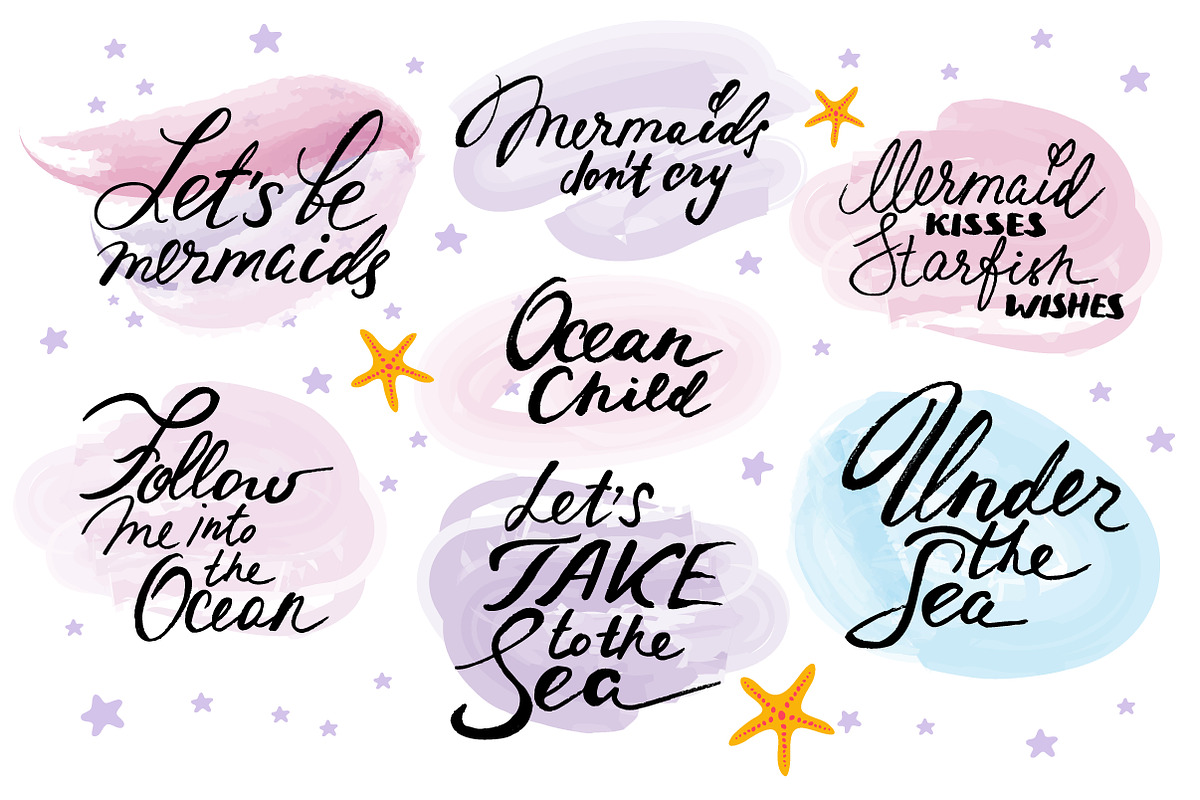 Let's be
mermaids
Mermaids
don't cry
Mermaid
KISSES
Starfish
WISHES
Ocean
Child
Follow
me into
the
Ocean
Let's
TAKE
to the
Sea
Under
the
Sea